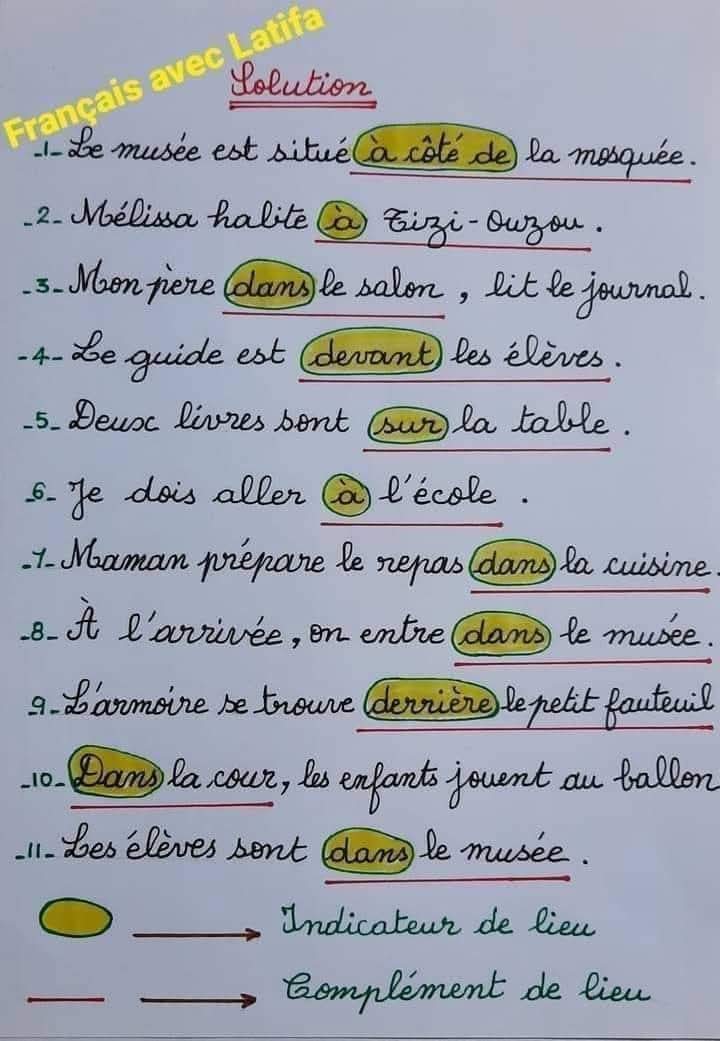 Français avec Latifa
Solution
-1- Le musée est situé à côté de la mosquée.
-2- Mélissa habite à Tizi-Ouzou.
-3- Mon père dans le salon, lit le journal.
-4- Le guide est devant les élèves.
-5- Deux livres sont sur la table.
-6- Je dois aller à l'école.
-7- Maman prépare le repas dans la cuisine.
-8- À l'arrivée, on entre dans le musée.
-9- L'armoire se trouve derrière le petit fauteuil
-10- Dans la cour, les enfants jouent au ballon
-11- Les élèves sont dans le musée.
Indicateur de lieu
Complément de lieu